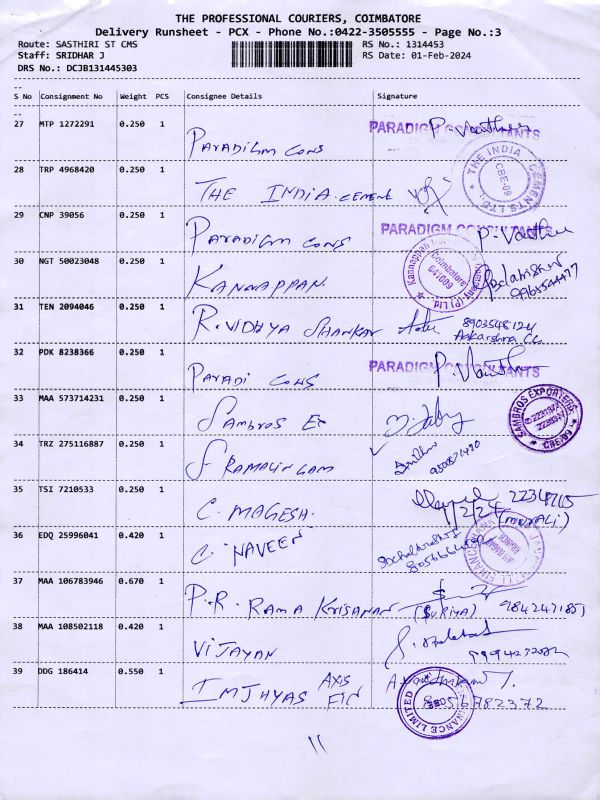 THE PROFESSIONAL COURIERS, COIMBATORE
Delivery Runsheet - PCX - Phone No.:0422-3505555 - Page No.:3
Route: SASTHIRI ST CMS
RS No.: 1314453
Staff: SRIDHAR J
RS Date: 01-Feb-2024
DRS No.: DCJB131445303
--
S No Consignment No Weight PCS Consignee Details Signature
--
27 MTP 1272291 0.250 1 PARADIGM CONS PARADIGM CONSULTANTS
28 TRP 4968420 0.250 1 THE INDIA CEMENT THE INDIA CEMENTS LTD CBE-09
29 CNP 39056 0.250 1 PARADIGM CONS PARADIGM CONSULTANTS
30 NGT 50023048 0.250 1 KANNAPPAN Coimbatore 641009
31 TEN 2094046 0.250 1 R. VIDHYA SHANKAR 8903548124
32 PDK 8238366 0.250 1 PARADI CONS PARADIGM CONSULTANTS
33 MAA 573714231 0.250 1 Sambros Ex SAMBROS EXPORTERS
34 TRZ 275116887 0.250 1 S RAMALINGAM
35 TSI 7210533 0.250 1 C. MAGESH. 1/2/24 (MURALI)
36 EDQ 25996041 0.420 1 C. NAVEEN
37 MAA 106783946 0.670 1 P.R. RAMA KRISHNAN (SURIYA) 9842471851
38 MAA 108502118 0.420 1 VIJAYAN
39 DDG 186414 0.550 1 AXIS FIN 8056782372
11